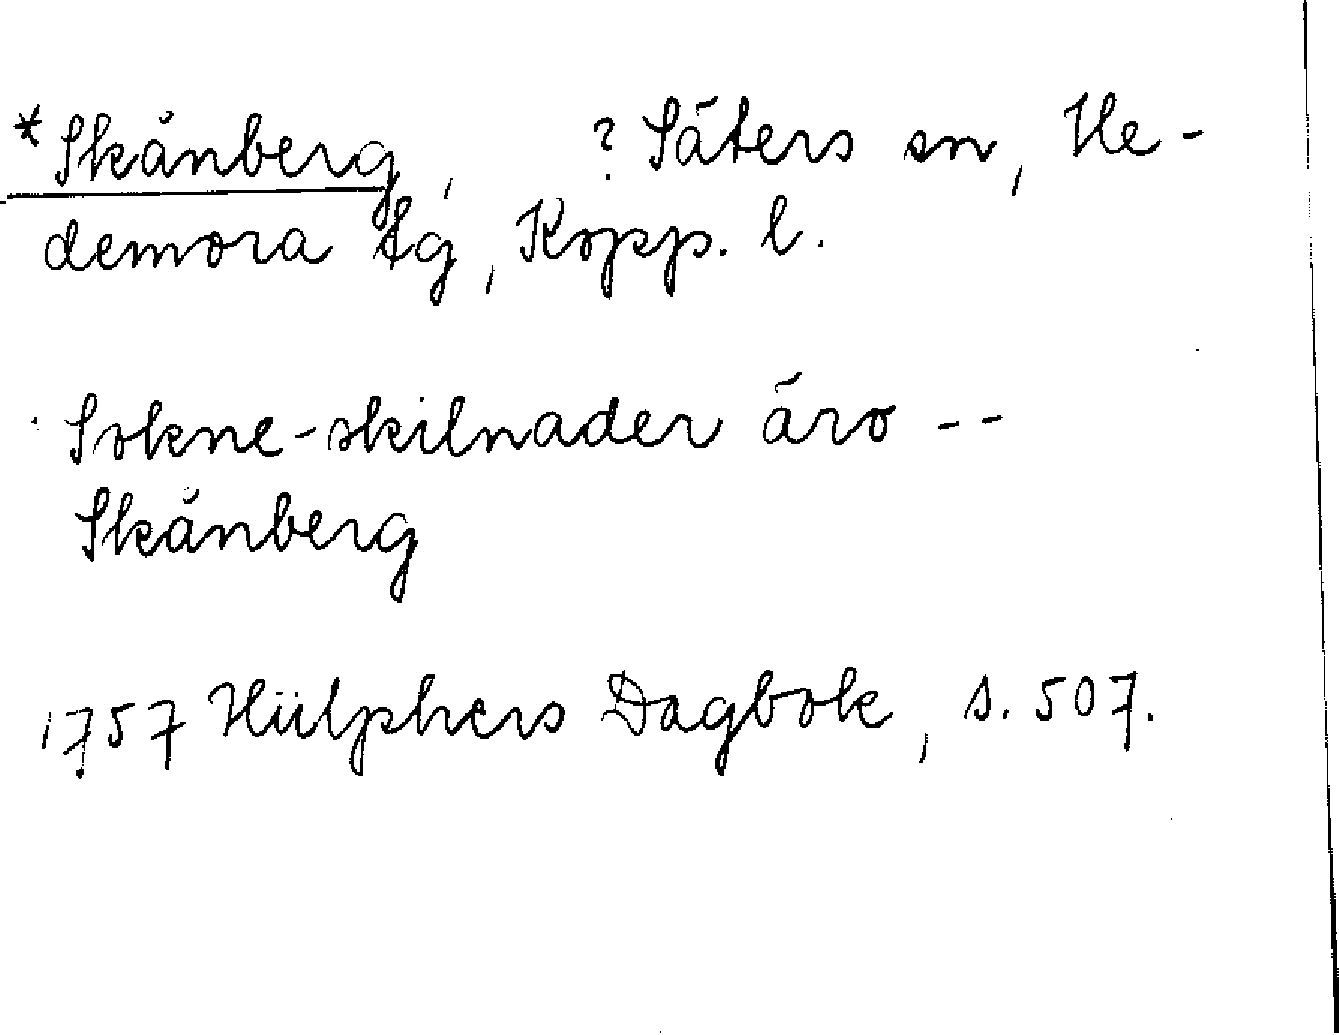 *Skånberg, ? Säters sn, He-
demora tg, Kopp. l.
Sokne-skilnader äro --
Skånberg
1757 Hülphers Dagbok, s. 507.